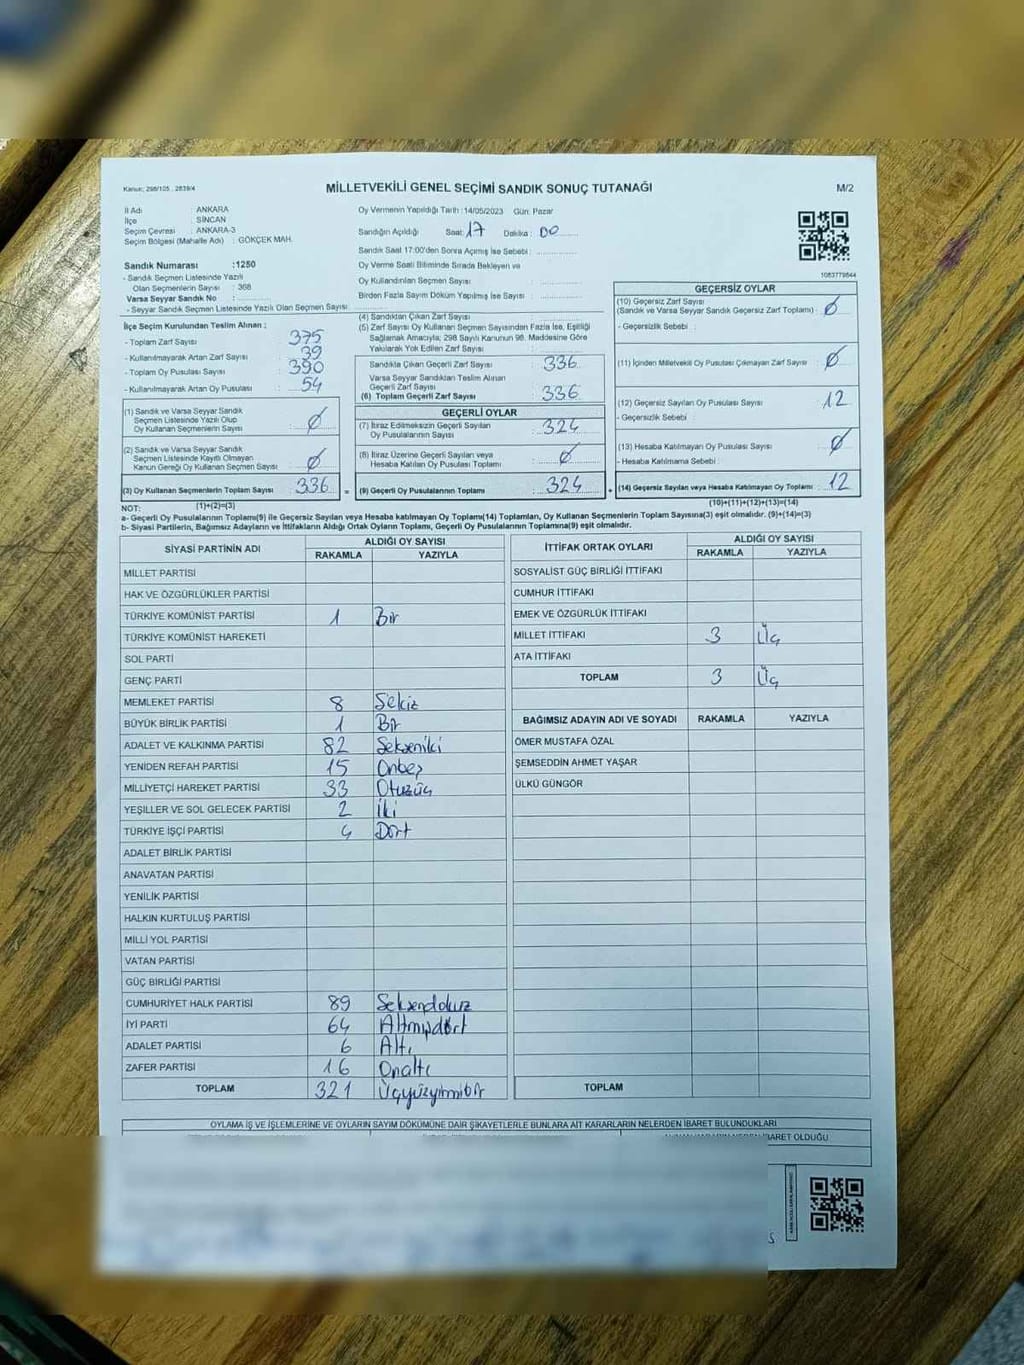 Kanun: 298/105 , 2839/4
MİLLETVEKİLİ GENEL SEÇİMİ SANDIK SONUÇ TUTANAĞI
M/2
İl Adı : ANKARA
İlçe : SİNCAN
Seçim Çevresi : ANKARA-3
Seçim Bölgesi (Mahalle Adı) : GÖKÇEK MAH.
Oy Vermenin Yapıldığı Tarih :14/05/2023 Gün: Pazar
Sandığın Açıldığı Saat: 17 Dakika: 00
Sandık Saat 17:00'den Sonra Açılmış İse Sebebi :
Oy Verme Saati Bitiminde Sırada Bekleyen ve
Oy Kullandırılan Seçmen Sayısı :
Birden Fazla Sayım Döküm Yapılmış İse Sayısı :
1083779844
Sandık Numarası :1250
- Sandık Seçmen Listesinde Yazılı
Olan Seçmenlerin Sayısı : 368
Varsa Seyyar Sandık No :
- Seyyar Sandık Seçmen Listesinde Yazılı Olan Seçmen Sayısı:
İlçe Seçim Kurulundan Teslim Alınan ;
- Toplam Zarf Sayısı : 375
- Kullanılmayarak Artan Zarf Sayısı : 39
- Toplam Oy Pusulası Sayısı : 390
- Kullanılmayarak Artan Oy Pusulası : 54
(1) Sandık ve Varsa Seyyar Sandık
Seçmen Listesinde Yazılı Olup
Oy Kullanan Seçmenlerin Sayısı : Ø
(2) Sandık ve Varsa Seyyar Sandık
Seçmen Listesinde Kayıtlı Olmayan
Kanun Gereği Oy Kullanan Seçmen Sayısı : Ø
(3) Oy Kullanan Seçmenlerin Toplam Sayısı : 336 =
(4) Sandıktan Çıkan Zarf Sayısı :
(5) Zarf Sayısı Oy Kullanan Seçmen Sayısından Fazla İse, Eşitliği
Sağlamak Amacıyla; 298 Sayılı Kanunun 98. Maddesine Göre
Yakılarak Yok Edilen Zarf Sayısı :
Sandıkta Çıkan Geçerli Zarf Sayısı : 336
Varsa Seyyar Sandıktan Teslim Alınan
Geçerli Zarf Sayısı
(6) Toplam Geçerli Zarf Sayısı : 336
GEÇERLİ OYLAR
(7) İtiraz Edilmeksizin Geçerli Sayılan
Oy Pusulalarının Sayısı : 324
(8) İtiraz Üzerine Geçerli Sayılan veya
Hesaba Katılan Oy Pusulası Toplamı : Ø
(9) Geçerli Oy Pusulalarının Toplamı : 324 +
GEÇERSİZ OYLAR
(10) Geçersiz Zarf Sayısı
(Sandık ve Varsa Seyyar Sandık Geçersiz Zarf Toplamı) : Ø
- Geçersizlik Sebebi :
(11) İçinden Milletvekili Oy Pusulası Çıkmayan Zarf Sayısı : Ø
(12) Geçersiz Sayılan Oy Pusulası Sayısı : 12
- Geçersizlik Sebebi :
(13) Hesaba Katılmayan Oy Pusulası Sayısı : Ø
- Hesaba Katılmama Sebebi :
(14) Geçersiz Sayılan veya Hesaba Katılmayan Oy Toplamı : 12
NOT: (1)+(2)=(3)
(10)+(11)+(12)+(13)=(14)
a- Geçerli Oy Pusulalarının Toplamı(9) ile Geçersiz Sayılan veya Hesaba katılmayan Oy Toplamı(14) Toplamları, Oy Kullanan Seçmenlerin Toplam Sayısına(3) eşit olmalıdır. (9)+(14)=(3)
b- Siyasi Partilerin, Bağımsız Adayların ve İttifakların Aldığı Ortak Oyların Toplamı, Geçerli Oy Pusulalarının Toplamına(9) eşit olmalıdır.
SİYASİ PARTİNİN ADI ALDIĞI OY SAYISI
RAKAMLA YAZIYLA
MİLLET PARTİSİ
HAK VE ÖZGÜRLÜKLER PARTİSİ
TÜRKİYE KOMÜNİST PARTİSİ 1 Bir
TÜRKİYE KOMÜNİST HAREKETİ
SOL PARTİ
GENÇ PARTİ
MEMLEKET PARTİSİ 8 Sekiz
BÜYÜK BİRLİK PARTİSİ 1 Bir
ADALET VE KALKINMA PARTİSİ 82 Sekseniki
YENİDEN REFAH PARTİSİ 15 Onbeş
MİLLİYETÇİ HAREKET PARTİSİ 33 Otuzüç
YEŞİLLER VE SOL GELECEK PARTİSİ 2 İki
TÜRKİYE İŞÇİ PARTİSİ 4 Dört
ADALET BİRLİK PARTİSİ
ANAVATAN PARTİSİ
YENİLİK PARTİSİ
HALKIN KURTULUŞ PARTİSİ
MİLLİ YOL PARTİSİ
VATAN PARTİSİ
GÜÇ BİRLİĞİ PARTİSİ
CUMHURİYET HALK PARTİSİ 89 Seksendokuz
İYİ PARTİ 64 Altmışdört
ADALET PARTİSİ 6 Altı
ZAFER PARTİSİ 16 Onaltı
TOPLAM 321 Üçyüzyirmibir
İTTİFAK ORTAK OYLARI ALDIĞI OY SAYISI
RAKAMLA YAZIYLA
SOSYALİST GÜÇ BİRLİĞİ İTTİFAKI
CUMHUR İTTİFAKI
EMEK VE ÖZGÜRLÜK İTTİFAKI
MİLLET İTTİFAKI 3 Üç
ATA İTTİFAKI
TOPLAM 3 Üç
BAĞIMSIZ ADAYIN ADI VE SOYADI RAKAMLA YAZIYLA
ÖMER MUSTAFA ÖZAL
ŞEMSEDDİN AHMET YAŞAR
ÜLKÜ GÜNGÖR
TOPLAM
OYLAMA İŞ VE İŞLEMLERİNE VE OYLARIN SAYIM DÖKÜMÜNE DAİR ŞİKAYETLERLE BUNLARA AİT KARARLARIN NELERDEN İBARET BULUNDUKLARI
İBARET OLDUĞU